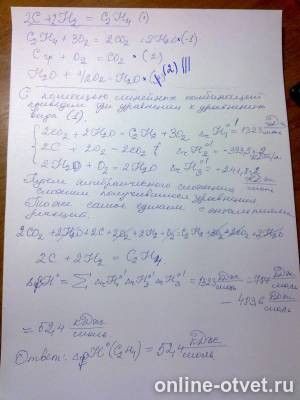 2C + 2H₂ = C₂H₄ (1)
C₂H₄ + 3O₂ = 2CO₂ + 2H₂O (-1)
Cгр + O₂ = CO₂ (2)
H₂O + 1/2O₂ = H₂O (2)
С помощью линейных комбинаций
приводим три уравнения к уравнению
вида (1)
2CO₂ + 2H₂O = C₂H₄ + 3O₂ H₁° = 1323 кДж/моль
2C + 2O₂ = 2CO₂ H₂° = -393,5·2 кДж/моль
2H₂O + O₂ = 2H₂O H₃° = -241,8·2
Путем алгебраического сложения
сложим получившиеся уравнения
То же самое сделаем с энтальпиями
реакций.
2CO₂ + 2H₂O + 2C + 2O₂ + 2H₂ + O₂ = C₂H₄ + 3O₂ + 2CO₂ + 2H₂O
2C + 2H₂ = C₂H₄
ΔfH° = Σ H₁° H₂° H₃° = 1323 кДж/моль - 787 кДж/моль
- 483,6 кДж/моль
= 52,4 кДж/моль
Ответ: ΔfH°(C₂H₄) = 52,4 кДж/моль
online-otvet.ru